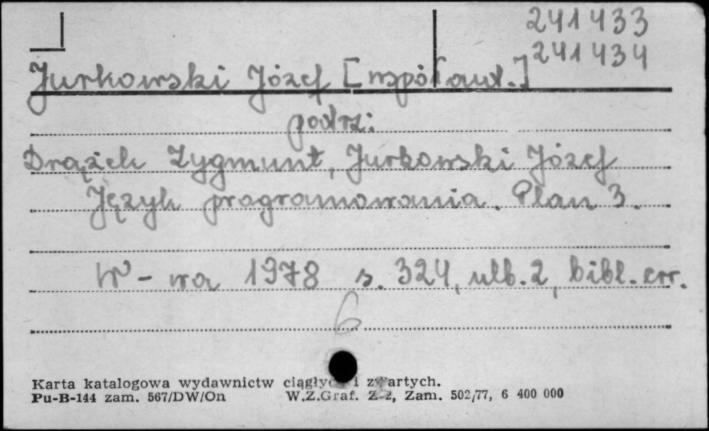 241433
241434
Jurkowski Józef [współaut.]
podrz:
Drążek Zygmunt, Jurkowski Józef
Język programowania. Plan 3.
W-wa 1978 s. 324, ulb. 2, bibl. err.
6
Karta katalogowa wydawnictw ciągłych i zwartych.
Pu-B-144 zam. 567/DW/On W.Z.Graf. Z-2, Zam. 502/77, 6 400 000